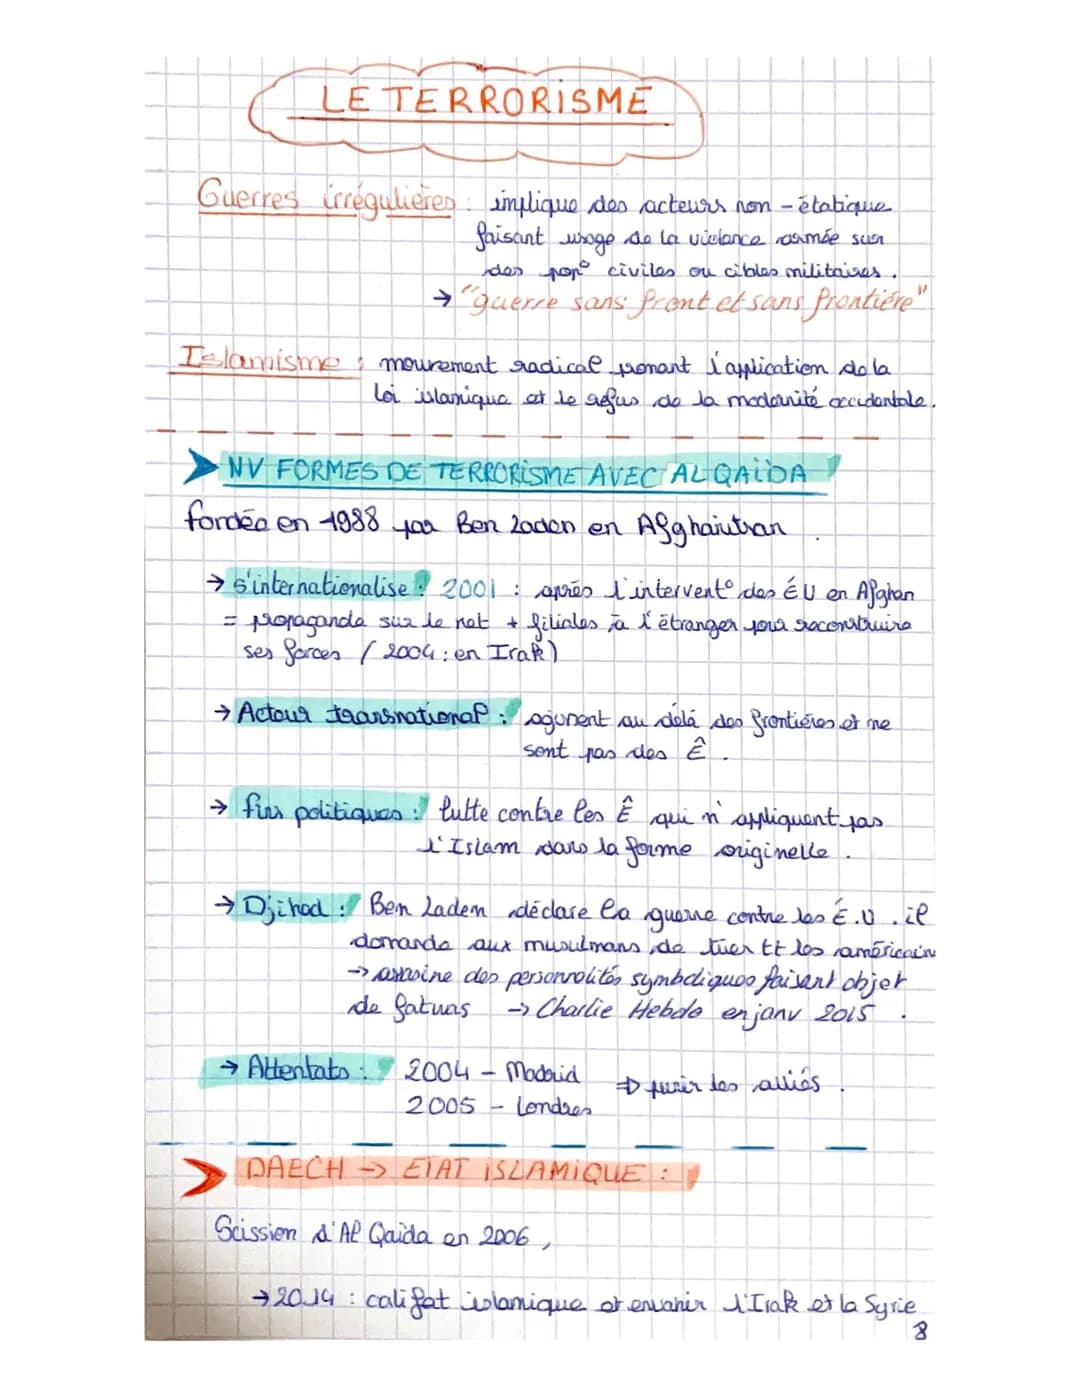 LE TERRORISME
Guerres irrégulières : implique des acteurs non-étatique
faisant usage de la violence armée sur
des pop° civiles ou cibles militaires.
→ "guerre sans front et sans frontière"
Islamisme : mouvement radical prônant l'application de la
loi islamique et le refus de la modernité occidentale.
➤ NV FORMES DE TERRORISME AVEC AL QAÏDA
fondée en 1988 par Ben Laden en Afghanistan.
→ s'internationalise : 2001 : après l'intervent° des ÉU en Afghan
= propagande sur le net + filiales à l'étranger pour reconstruire
ses forces (2004 : en Irak)
→ Acteur transnational : agissent au délà des frontières et ne
sont pas des Ê.
→ fins politiques : lutte contre les Ê qui n'appliquent pas
l'Islam dans la forme originelle.
→ Djihad : Ben Laden déclare la guerre contre les É.U. il
demande aux musulmans de tuer tt les américains
→ assasine des personnalités symboliques faisant objet
de fatwas → Charlie Hebdo en janv 2015.
→ Attentats : 2004 - Madrid
2005 - Londres
⇒ punir les alliés.
➤ DAECH → ETAT ISLAMIQUE :
Scission d'Al Qaïda en 2006,
→ 2014 : califat islamique et envahir l'Irak et la Syrie
8